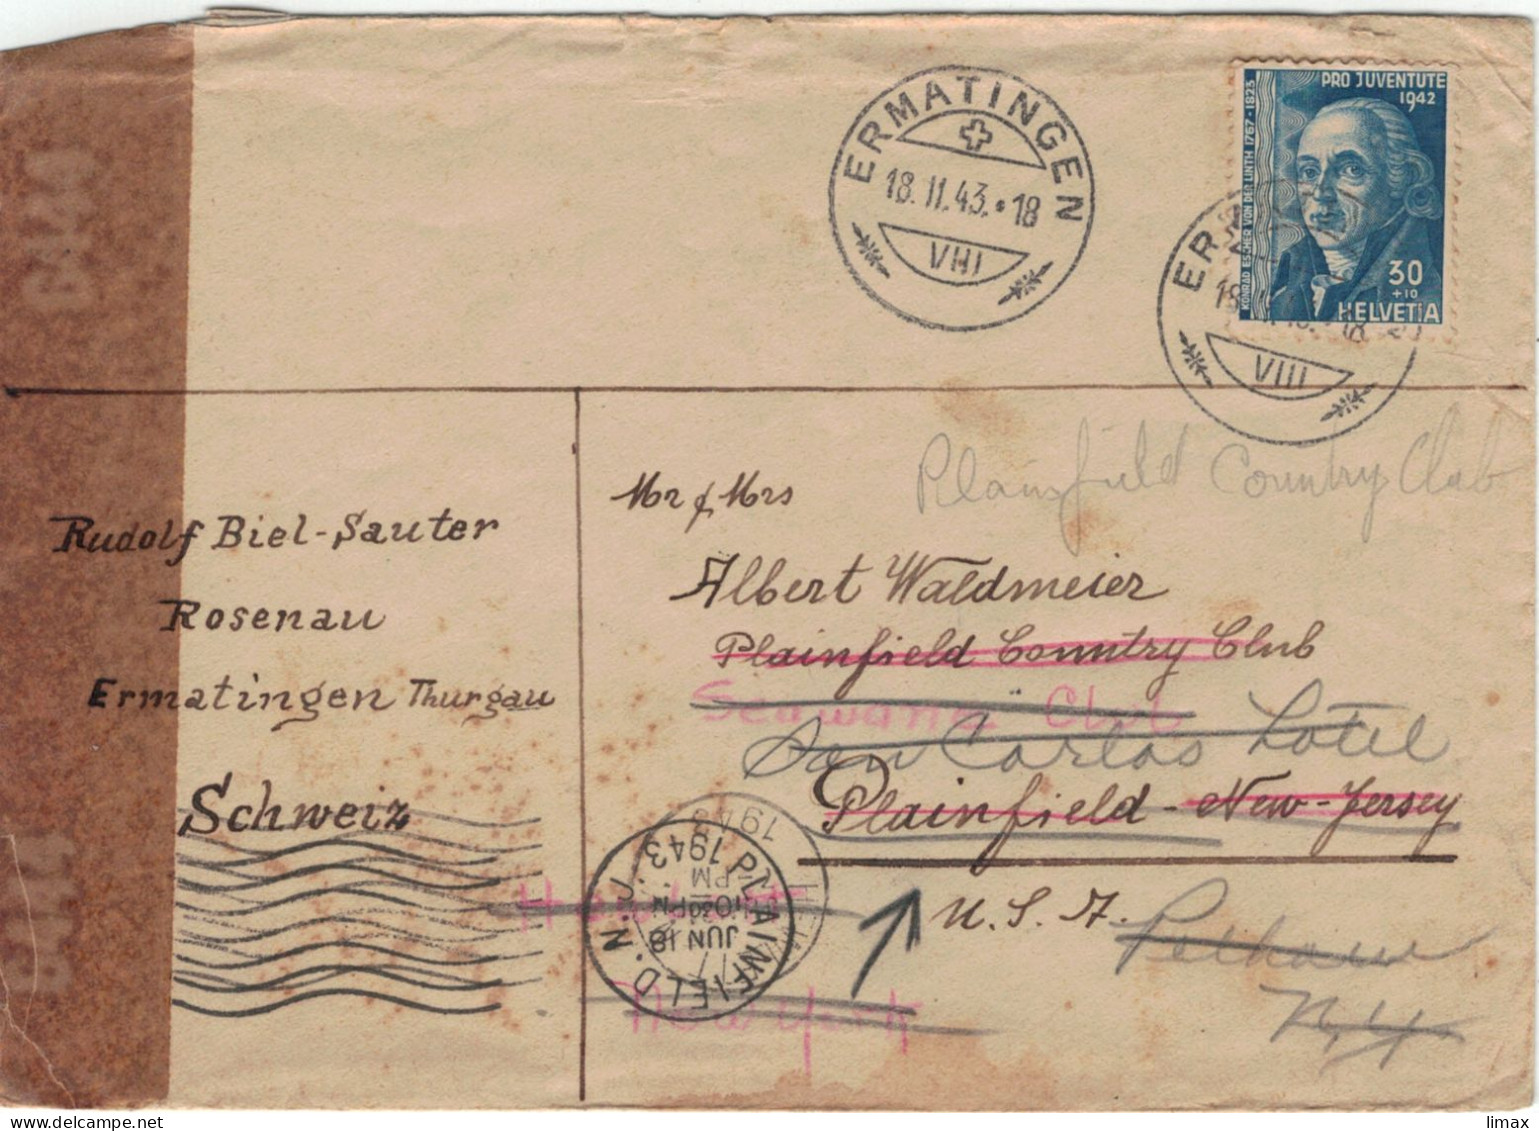 ERMATINGEN
18.II.43.*18
VIII
PRO JUVENTUTE
1942
KONRAD ESCHER VON DER LINTH 1767-1823
30
+10
HELVETIA
VIII
Plainfield Country Club
Mr & Mrs
Albert Waldmeier
Plainfield Country Club
Seawane Club
San Carlos Hotel
Plainfield - New-Jersey
U.S.A.
Pelham
N.Y.
Hewlett
New York
Rudolf Biel-Sauter
Rosenau
Ermatingen Thurgau
Schweiz
PLAINFIELD N.J.
JUN 18
1030 PM
1943
1943
6414
6414
limax